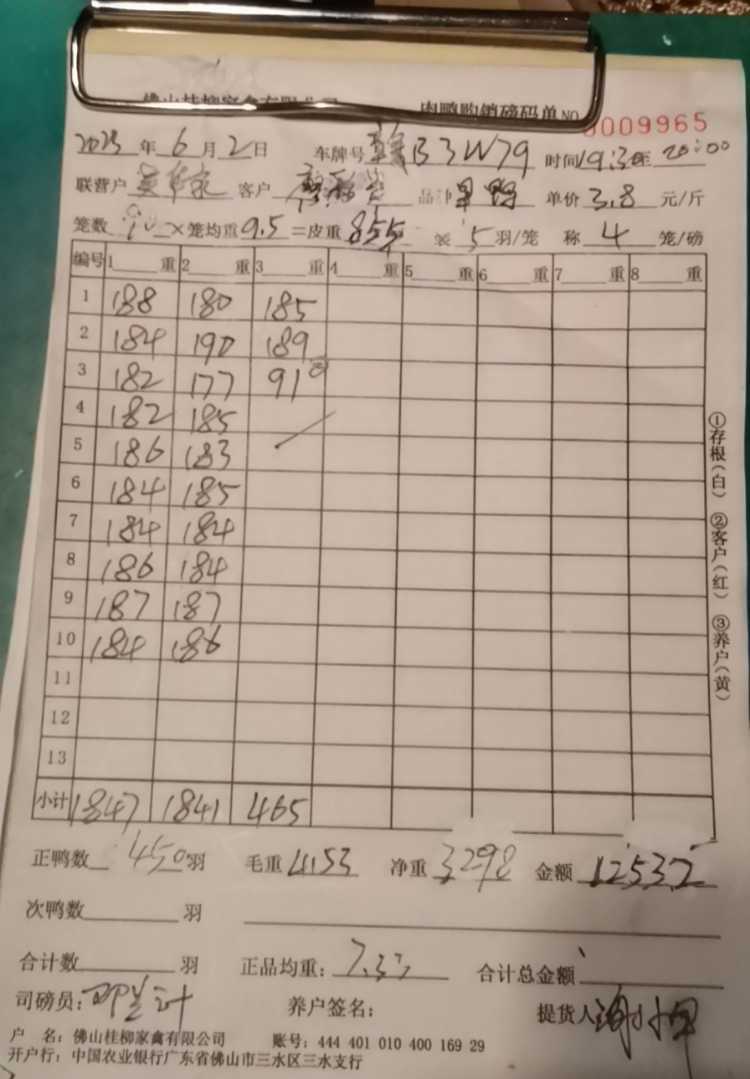 佛山桂柳家禽有限公司 肉鸭购销磅码单 NO 0009965
2023 年 6 月 2 日 车牌号 B3W79 时间 19:30至 20:00
联营户 客户 品种 单价 3.8 元/斤
笼数 90 ×笼均重 9.5 =皮重 855 装 5 羽/笼 称 4 笼/磅
编号 1 重 2 重 3 重 4 重 5 重 6 重 7 重 8 重
1 188 180 185
2 184 190 189
3 182 177 91
4 182 185
5 186 183
6 184 185
7 184 184
8 186 184
9 187 187
10 184 186
11
12
13
小计 1847 1841 465
①存根(白) ②客户(红) ③养户(黄)
正鸭数 450 羽 毛重 4153 净重 3298 金额 12532
次鸭数 羽
合计数 羽 正品均重: 7.33 合计总金额
司磅员: 养户签名: 提货人
户 名: 佛山桂柳家禽有限公司 账号: 444 401 010 400 169 29
开户行: 中国农业银行广东省佛山市三水区三水支行